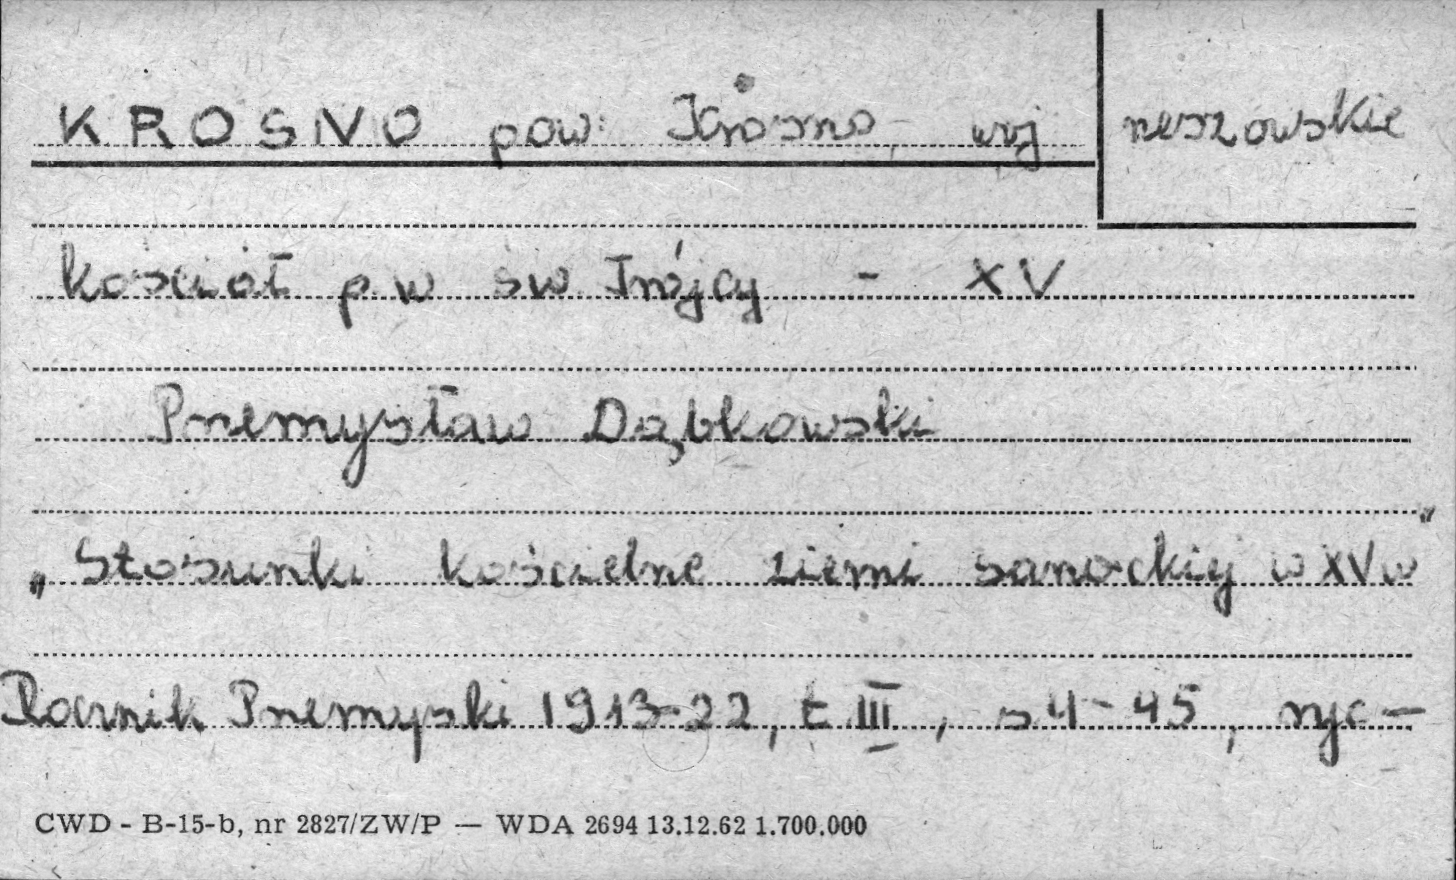 KROSNO pow. Krosno, woj rzeszowskie
kościół p.w św Trójcy - XV
Przemysław Dąbkowski
„Stosunki kościelne ziemi sanockiej w XV w"
Rocznik Przemyski 1913-22, t III, s 4-45, ryc -
CWD - B-15-b, nr 2827/ZW/P — WDA 2694 13.12.62 1.700.000